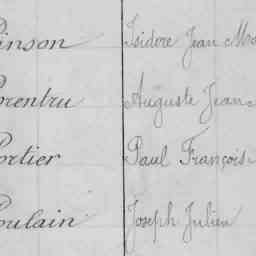 inson Isidore Jean Ma
orentru Auguste Jean
ortier Paul François
oulain Joseph Julien